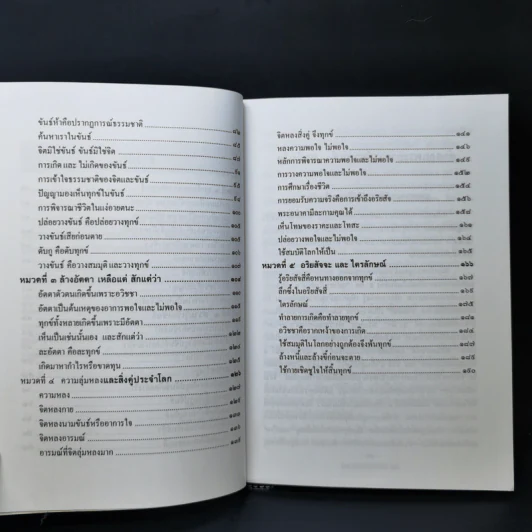 ขันธ์ห้าคือปรากฏการณ์ธรรมชาติ ๘๒
ค้นหาเราในขันธ์ ๘๕
จิตมิใช่ขันธ์ ขันธ์มิใช่จิต
การเกิด และ ไม่เกิดของขันธ์
การเข้าใจธรรมชาติของจิตและขันธ์
ปัญญามองเห็นทุกข์ในขันธ์
การพิจารณาชีวิตในแง่อายตนะ
ปล่อยวางขันธ์ คือปล่อยวางทุกข์
วางขันธ์เสียก่อนตาย
ดับกู คือดับทุกข์
วางขันธ์ คือวางสมมุติ และวางทุกข์
หมวดที่ ๓ ล้างอัตตา เหลือแต่ สักแต่ว่า
อัตตาตัวตนเกิดขึ้นเพราะอวิชชา
อัตตาเป็นต้นเหตุของอาการพอใจและไม่พอใจ
ทุกข์ทั้งหลายเกิดขึ้นเพราะมีอัตตา
เห็นเป็นเช่นนั้นเอง และสักแต่ว่า
ละอัตตา คือละทุกข์
เกิดมาหากำไรหรือขาดทุน
หมวดที่ ๔ ความลุ่มหลงและสิ่งคู่ประจำโลก ๑๒๖
ความหลง ๑๒๗
จิตหลงกาย
จิตหลงนามขันธ์หรืออาการใจ
จิตหลงอารมณ์
อารมณ์ที่จิตลุ่มหลงมาก
จิตหลงสิ่งคู่ จึงทุกข์ ๑๔๑
หลงความพอใจ ไม่พอใจ ๑๔๖
หลักการพิจารณาความพอใจและไม่พอใจ ๑๔๙
การวางความพอใจและไม่พอใจ ๑๕๒
การศึกษาเรื่องชีวิต ๑๕๔
การยอมรับความจริงคือการเข้าถึงอริยสัจ ๑๕๖
พระอนาคามีละกามคุณได้ ๑๕๘
เห็นโทษของราคะและโทสะ ๑๖๑
ปล่อยวางพอใจและไม่พอใจ ๑๖๔
ใช้สมบัติโลกให้เป็น ๑๖๕
หมวดที่ ๕ อริยสัจจะ และ ไตรลักษณ์ ๑๖๖
รู้อริยสัจสี่คือหนทางออกจากทุกข์ ๑๖๗
ลึกซึ้งในอริยสัจสี่
ไตรลักษณ์ ๑๗๕
ทำลายการเกิดคือทำลายทุกข์ ๑๘๑
อวิชชาคือรากเหง้าของการเกิด ๑๘๔
ใช้สมมุติในโลกอย่างถูกต้องจึงพ้นทุกข์ ๑๘๗
ล้างหนี้และล้างขี้ก่อนจะตาย ๑๘๙
ใช้กายเชิดชูใจให้สิ้นทุกข์ ๑๙๐